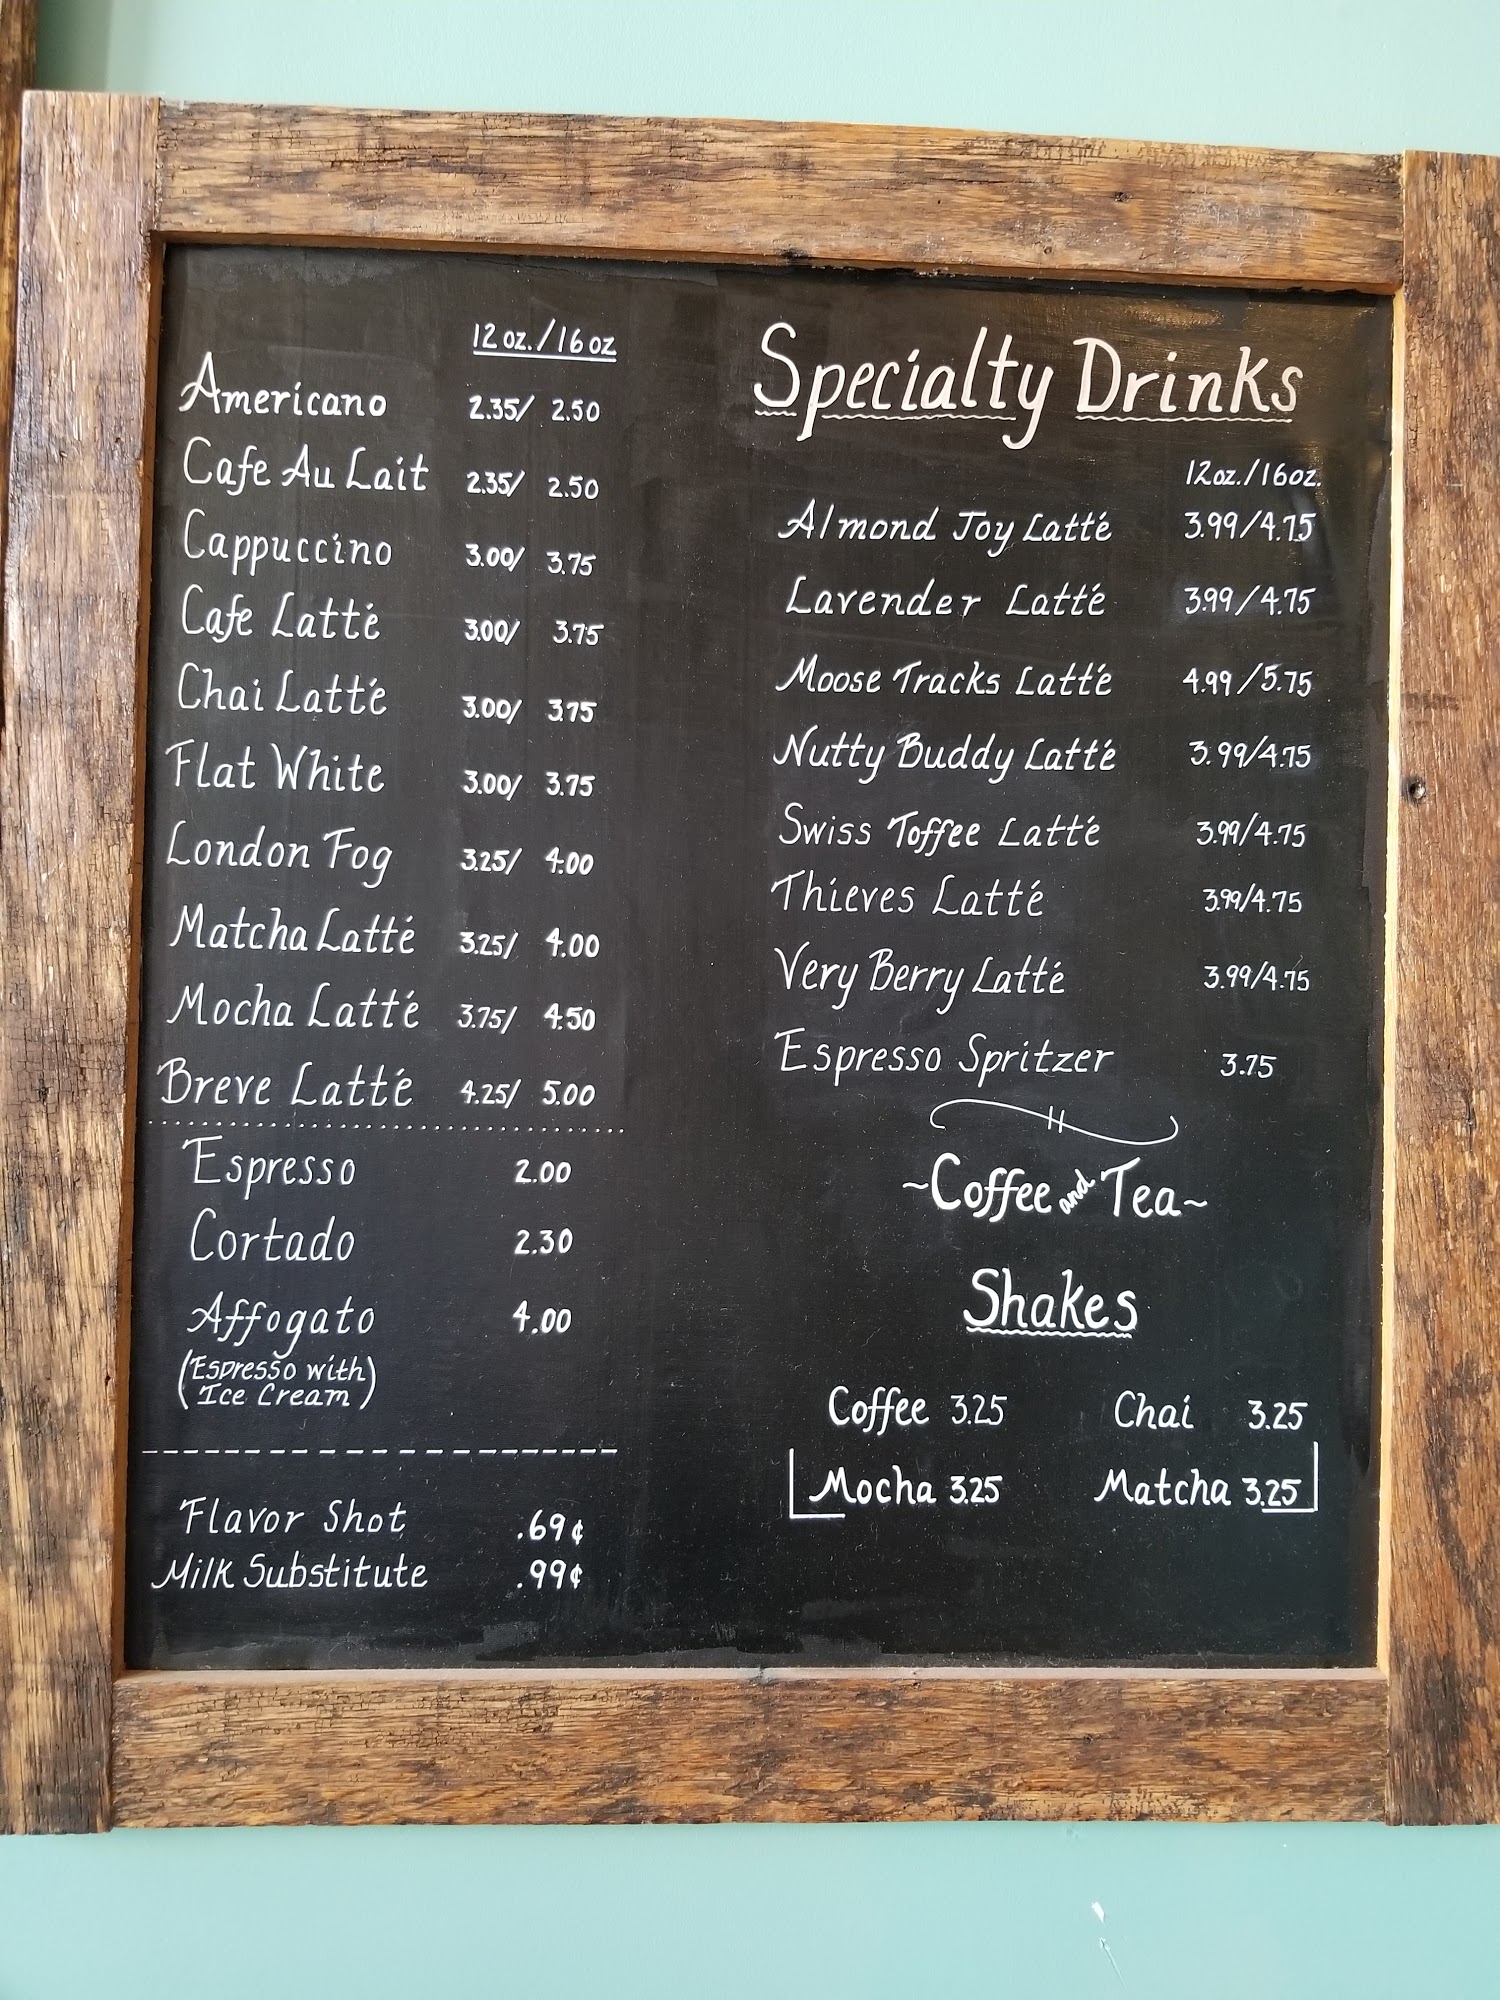 12 oz. / 16 oz
Americano 2.35/ 2.50
Cafe Au Lait 2.35/ 2.50
Cappuccino 3.00/ 3.75
Cafe Latté 3.00/ 3.75
Chai Latté 3.00/ 3.75
Flat White 3.00/ 3.75
London Fog 3.25/ 4.00
Matcha Latté 3.25/ 4.00
Mocha Latté 3.75/ 4.50
Breve Latté 4.25/ 5.00
Espresso 2.00
Cortado 2.30
Affogato 4.00
(Espresso with
Ice Cream)
Flavor Shot .69¢
Milk Substitute .99¢
Specialty Drinks
12oz./16oz.
Almond Joy Latté 3.99/4.75
Lavender Latté 3.99/4.75
Moose Tracks Latté 4.99/5.75
Nutty Buddy Latté 3.99/4.75
Swiss Toffee Latté 3.99/4.75
Thieves Latté 3.99/4.75
Very Berry Latté 3.99/4.75
Espresso Spritzer 3.75
~Coffee and Tea~
Shakes
Coffee 3.25 Chai 3.25
Mocha 3.25 Matcha 3.25